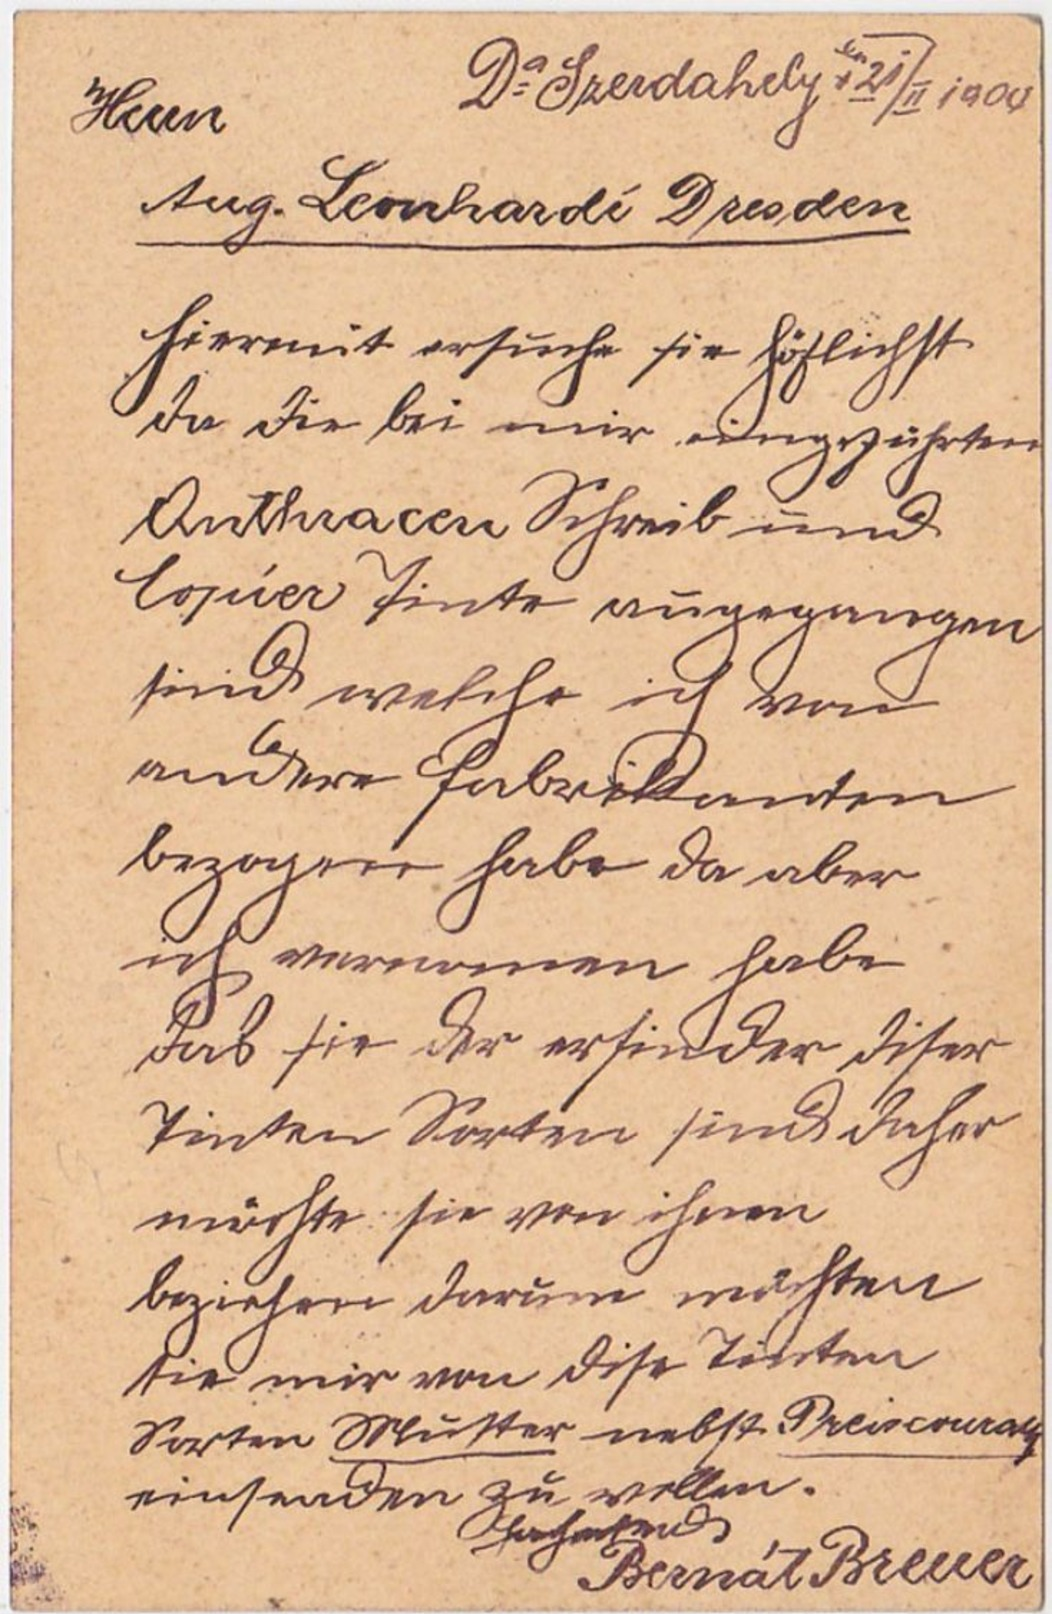 Da Szerdahely den 21/II 1900
Herrn
Aug. Leonhardi Dresden
Hiermit ersuche sie höflichst
da die bei mir eingeführten
Anthracen Schreib und
Copier Tinte ausgegangen
sind welche ich von
andere Fabrikanten
bezogen habe da aber
ich vernomen habe
daß sie der erfinder diser
Tinten Sorten sind daher
möchte sie von ihnen
beziehen darum möchten
sie mir von dise Tinten
Sorten Muster nebst Preiscourant
einsenden zu wollen.
Hochachtend
Bernát Breuer